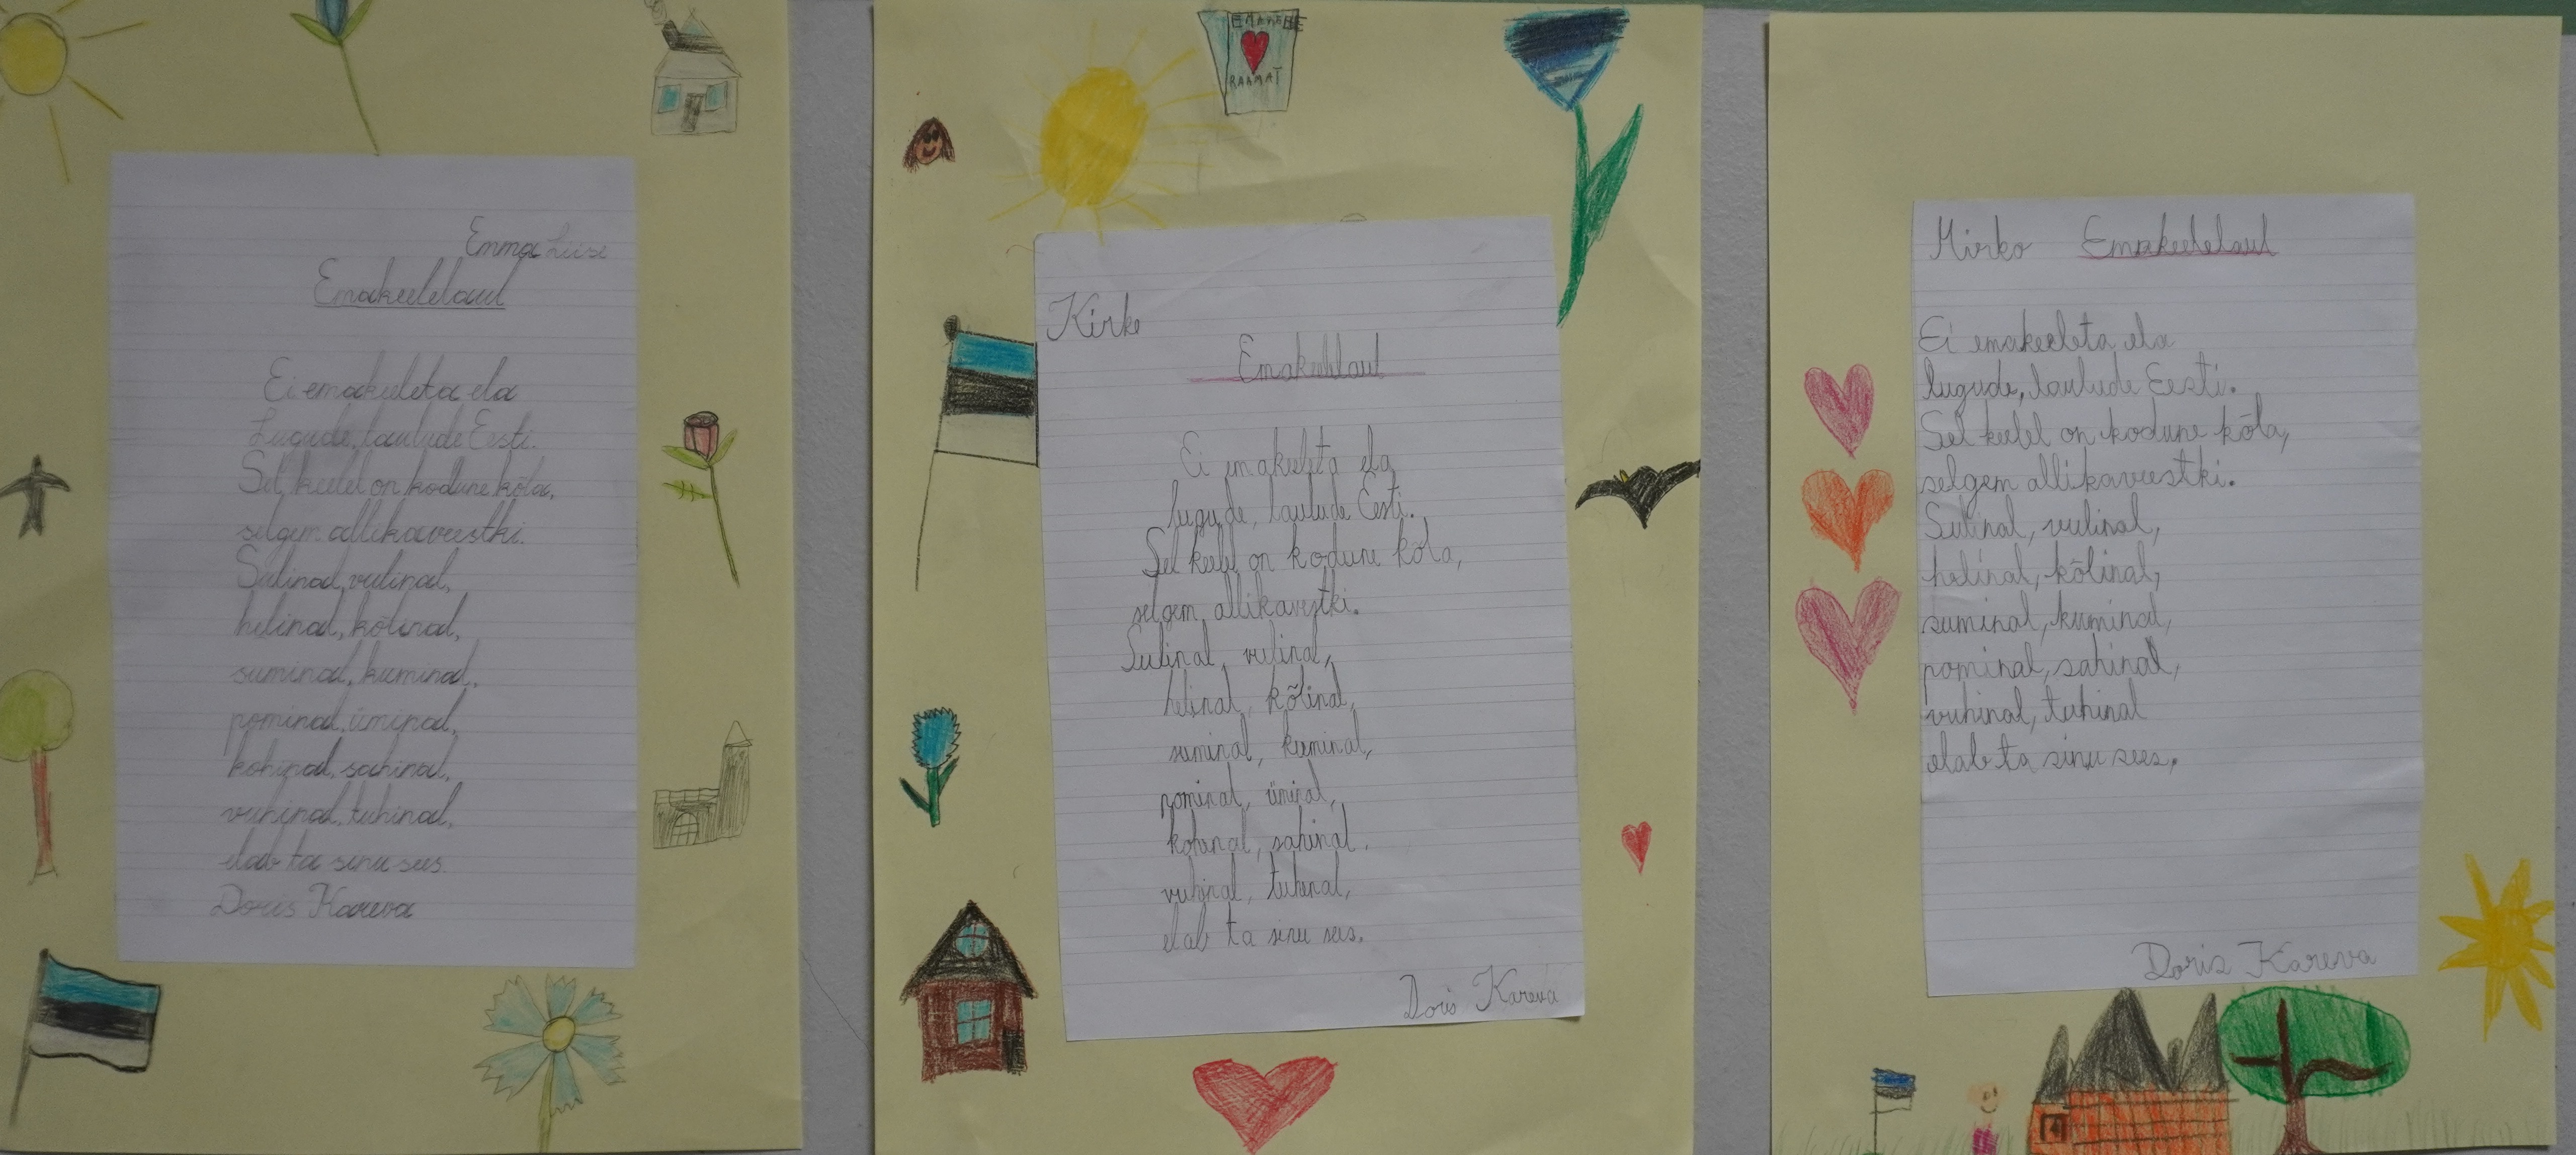 Emma Liise
Emakeelelaul
Ei emakeeleta ela
Lugude, laulude Eesti.
Sel keelel on kodune kõla,
selgem allikaveestki.
Sulinal, vulinal,
helinal, kõlinal,
suminal, kuminal,
pominal, üminal,
kohinal, sahinal,
vuhinal, tuhinal,
elab ta sinu sees.
Doris Kareva
EMAKEELE
RAAMAT
Kirke
Emakeelelaul
Ei emakeeleta ela
lugude, laulude Eesti.
Sel keelel on kodune kõla,
selgem allikavestki.
Sulinal, vulinal,
helinal, kõlinal,
suminal, kuminal,
pominal, üminal,
kohinal, sahinal,
vuhinal, tuhinal,
elab ta sinu sees.
Doris Kareva
Mirko Emakeelelaul
Ei emakeeleta ela
lugude, laulude Eesti.
Sel keelel on kodune kõla,
selgem allikaveestki.
Sulinal, vulinal,
helinal, kõlinal,
suminal, kuminal,
pominal, sahinal,
vuhinal, tuhinal
elab ta sinu sees.
Doris Kareva